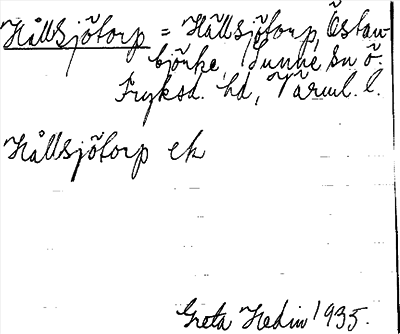 Hållsjötorp = Hållsjötorp, Östan-
björke, Sunne sn Ö.
Fryksd. hd, Värml. l.
Hållsjötorp ek
Greta Hedin 1935.